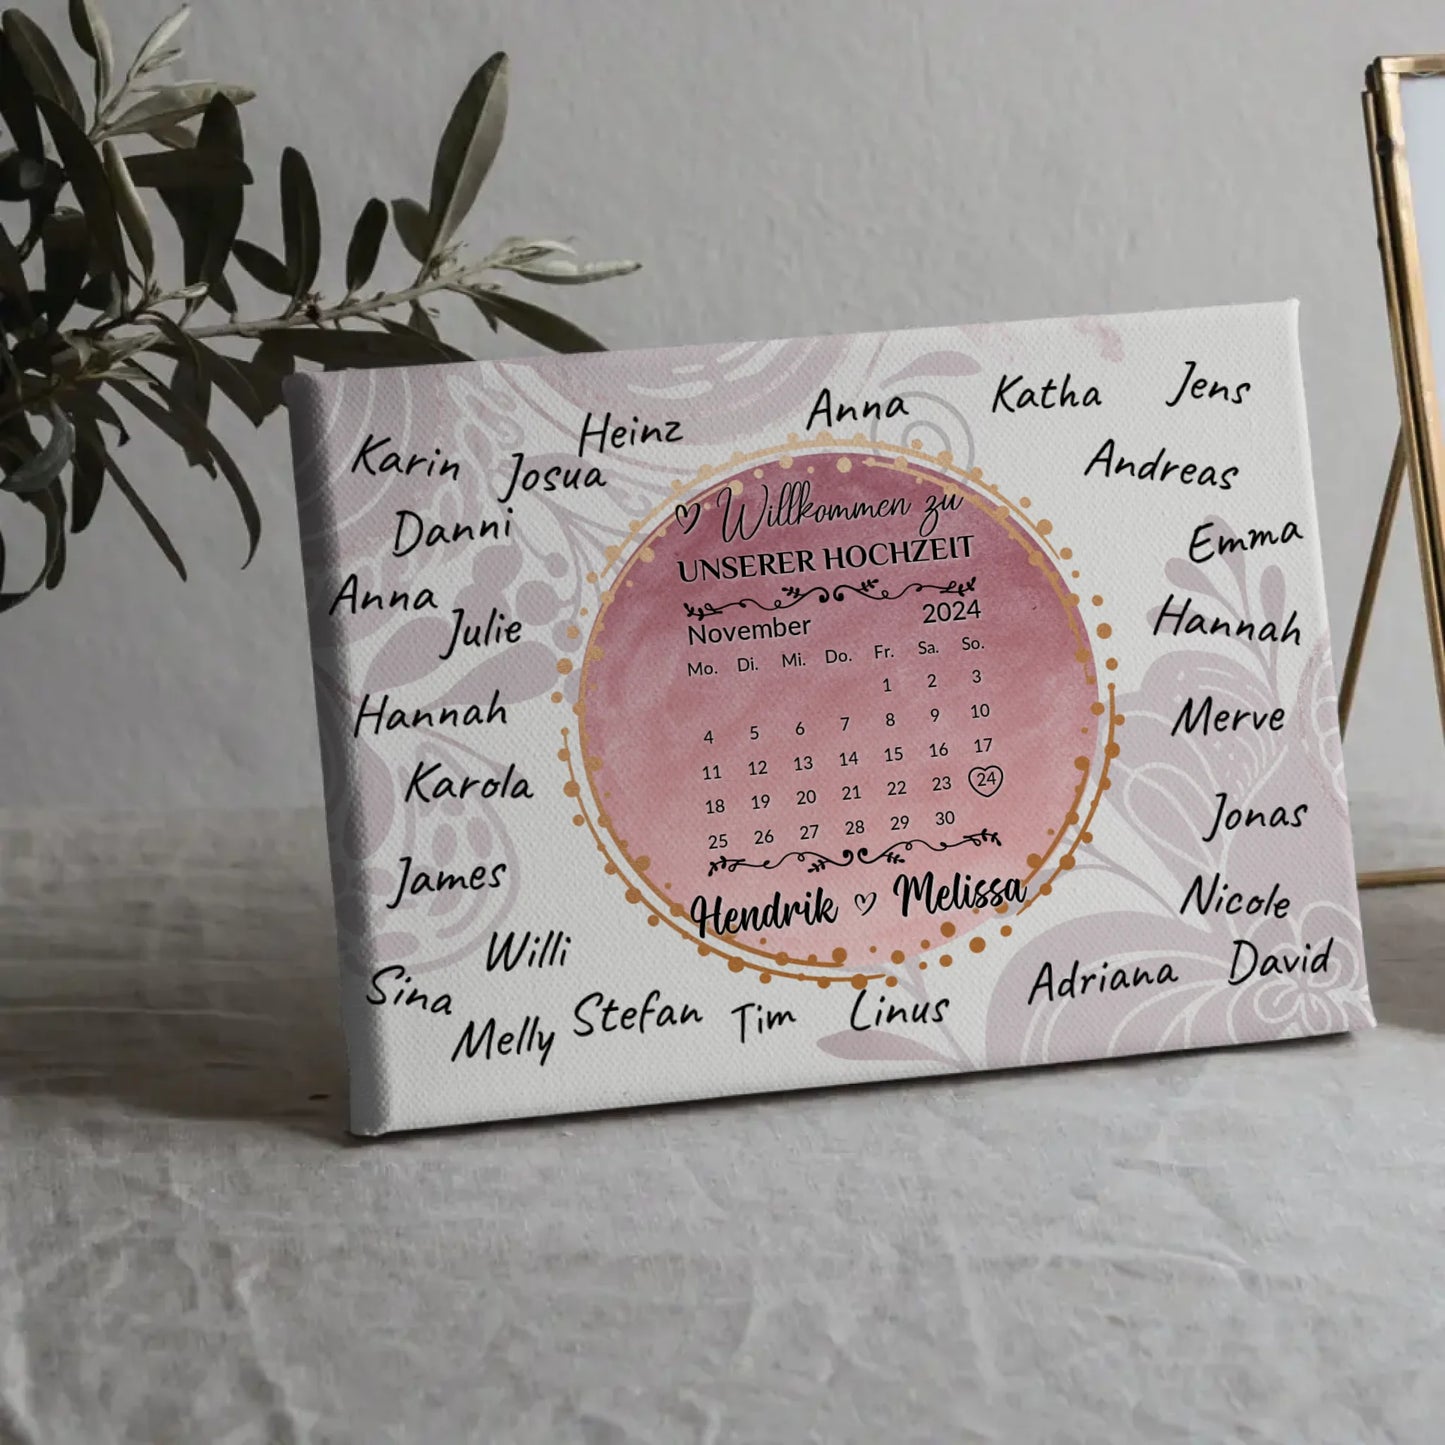 Heinz
Anna
Katha
Jens
Karin
Josua
Andreas
Danni
Emma
Anna
Julie
Hannah
Hannah
Merve
Karola
Jonas
James
Nicole
Willi
David
Sina
Adriana
Melly
Stefan
Tim
Linus
Willkommen zu
UNSERER HOCHZEIT
November 2024
Mo. Di. Mi. Do. Fr. Sa. So.
1 2 3
4 5 6 7 8 9 10
11 12 13 14 15 16 17
18 19 20 21 22 23 24
25 26 27 28 29 30
Hendrik ♡ Melissa